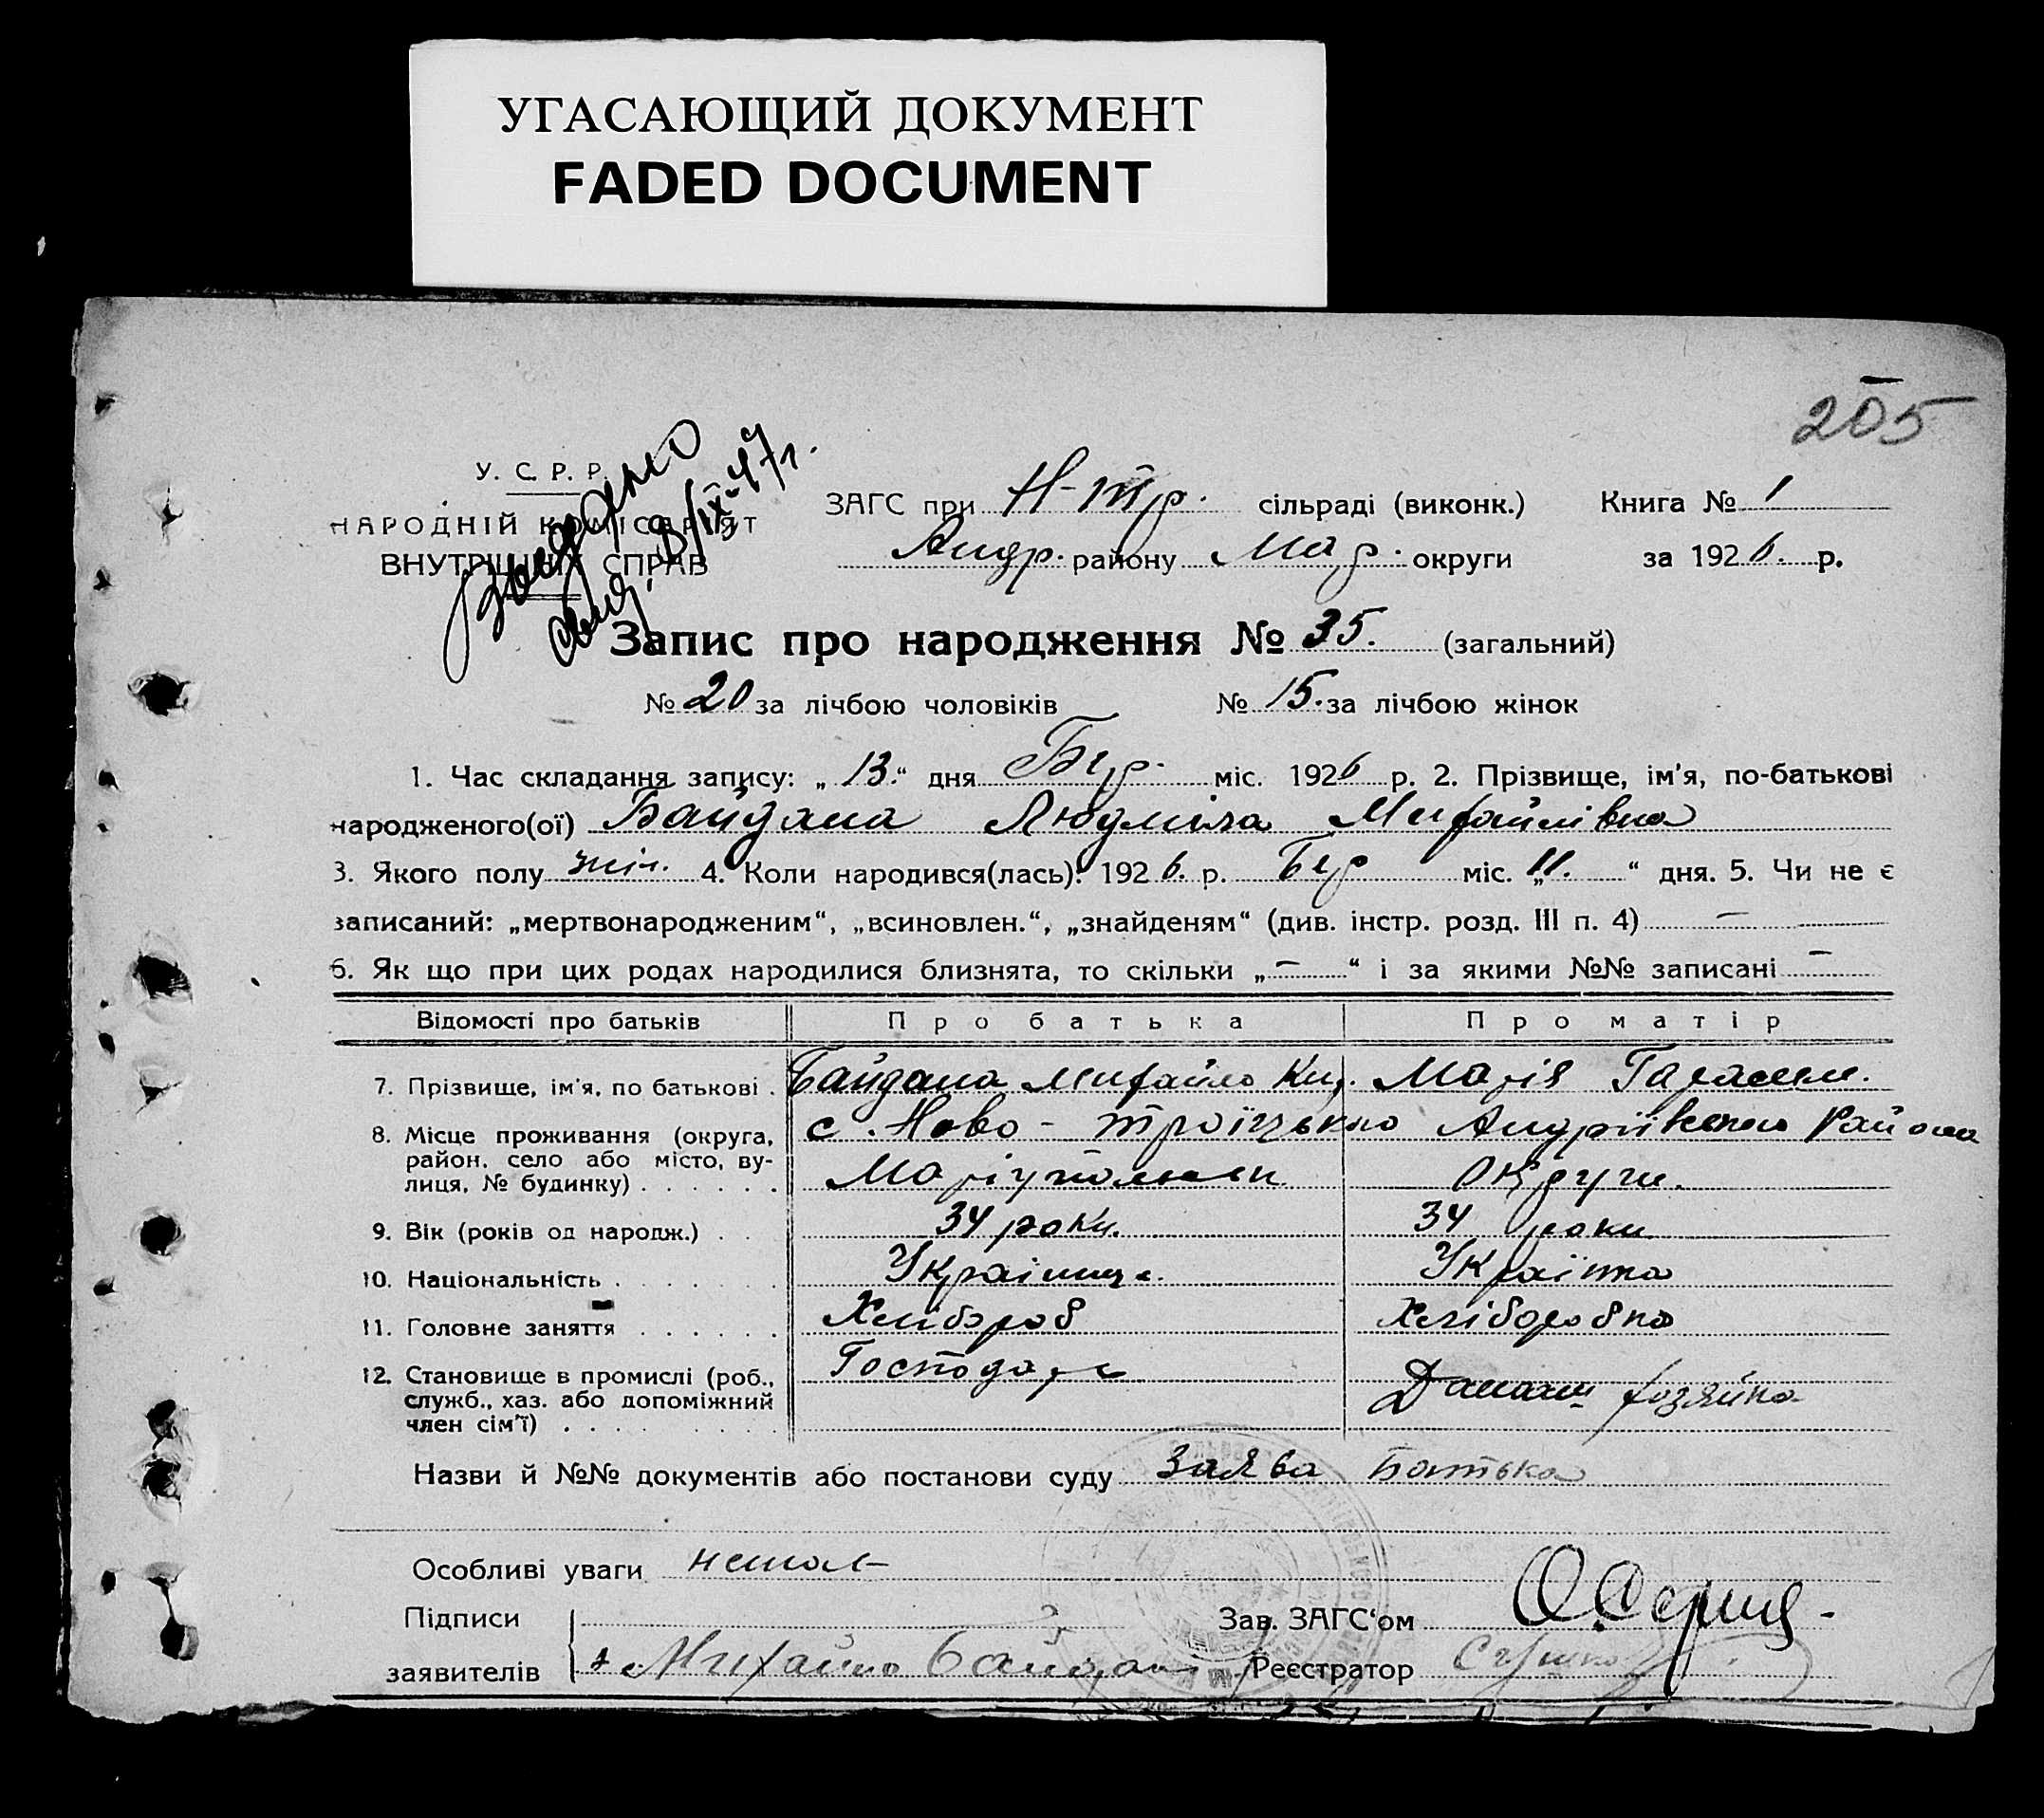 УГАСАЮЩИЙ ДОКУМЕНТ
FADED DOCUMENT
205
У. С. Р. Р.
НАРОДНІЙ КОМІСАРІЯТ
ВНУТРІШНІХ СПРАВ
Выдано
свид. 8/IX-47г.
ЗАГС при Н-Тр. сільраді (виконк.) Книга № 1
Андр. району Мар. округи за 1926. р.
Запис про народження № 35. (загальний)
№ 20 за лічбою чоловіків № 15. за лічбою жінок
1. Час складання запису: „13.“ дня Бер. міс. 1926 р. 2. Прізвище, ім'я, по-батькові
народженого(ої) Байдала Людміла Михайлівна
3. Якого полу жін. 4. Коли народився(лась): 1926. р. Бер міс. „11.“ дня. 5. Чи не є
записаний: „мертвонародженим“, „всиновлен.“, „знайденям“ (див. інстр. розд. III п. 4) —
6. Як що при цих родах народилися близнята, то скільки „—“ і за якими №№ записані —
Відомості про батьків Про батька Про матір
7. Прізвище, ім'я, по батькові . Байдала Михайло Кир. Марія Гарасим.
8. Місце проживання (округа, район, село або місто, вулиця, № будинку) . . . . . . с. Ново-Троїцько Андріївсько Района
Маріупольськ Округи.
9. Вік (років од народж.) . . . 34 роки. 34 роки
10. Національність . . . . . . . Українець. Українка
11. Головне заняття . . . . . . Хлібороб Хліборобка
12. Становище в промислі (роб., служб., хаз. або допоміжний член сім'ї) . . . . . . . Господарь Домаш. хозяйка
Назви й №№ документів або постанови суду Заява Батька
Особливі уваги немає
Підписи Зав. ЗАГС'ом
заявителів Михайло Байдал Реєстратор